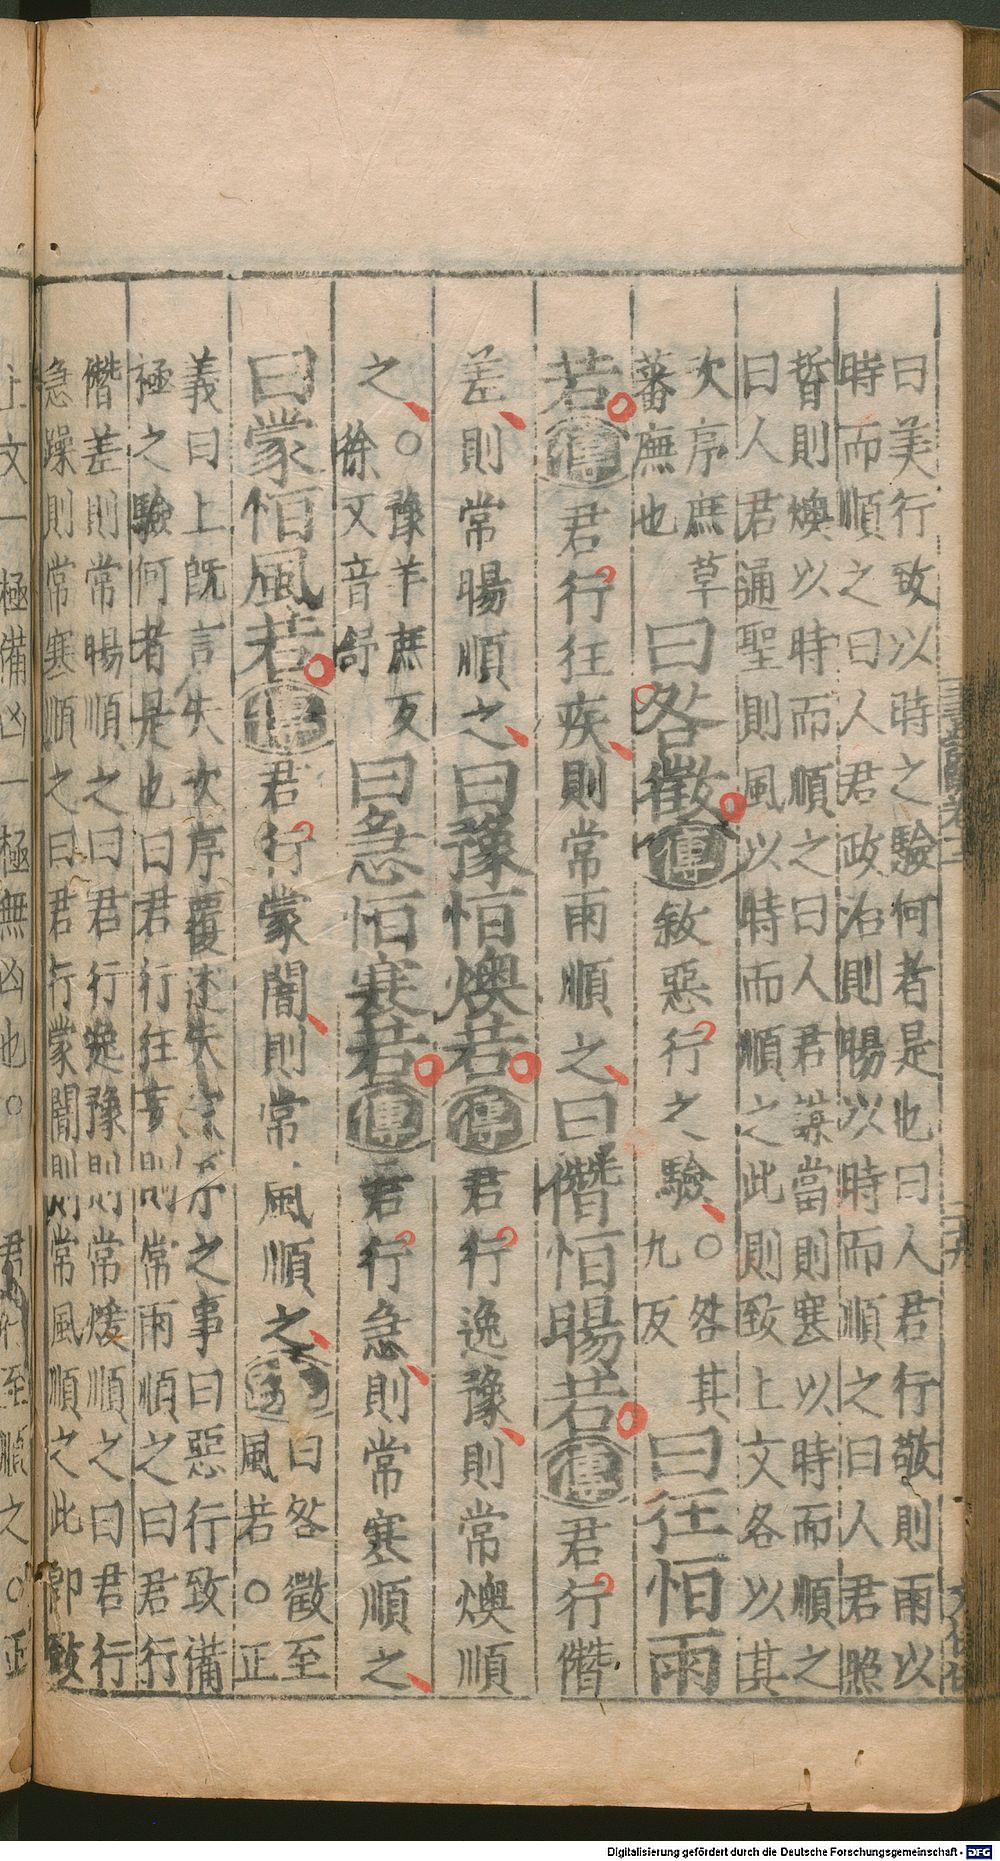 曰美行致以時之驗何者是也曰人君行敬則雨以
時而順之曰人君政治則暘以時而順之曰人君照
晢則燠以時而順之曰人君謀當則寒以時而順之
曰人君通聖則風以時而順之此則致上文各以其
次序庶草
蕃廡也
曰咎徵傳敘惡行之驗○咎其
九反
曰狂恒雨
若傳君行狂疾則常雨順之曰僭恒暘若傳君行僭
差則常暘順之曰豫恒燠若傳君行逸豫則常燠順
之○豫羊庶反
徐又音舒
曰急恒寒若傳君行急則常寒順之
曰蒙恒風若傳君行蒙闇則常風順之
曰咎徵至
風若○正
義曰上既言失次序覆述失次序之事曰惡行致備
極之驗何者是也曰君行狂妄則常雨順之曰君行
僭差則常暘順之曰君行逸豫則常煖順之曰君行
急躁則常寒順之曰君行蒙闇則常風順之此即致
上文一極備凶一極無凶也○君行至順之○正
Digitalisierung gefördert durch die Deutsche Forschungsgemeinschaft - DFG